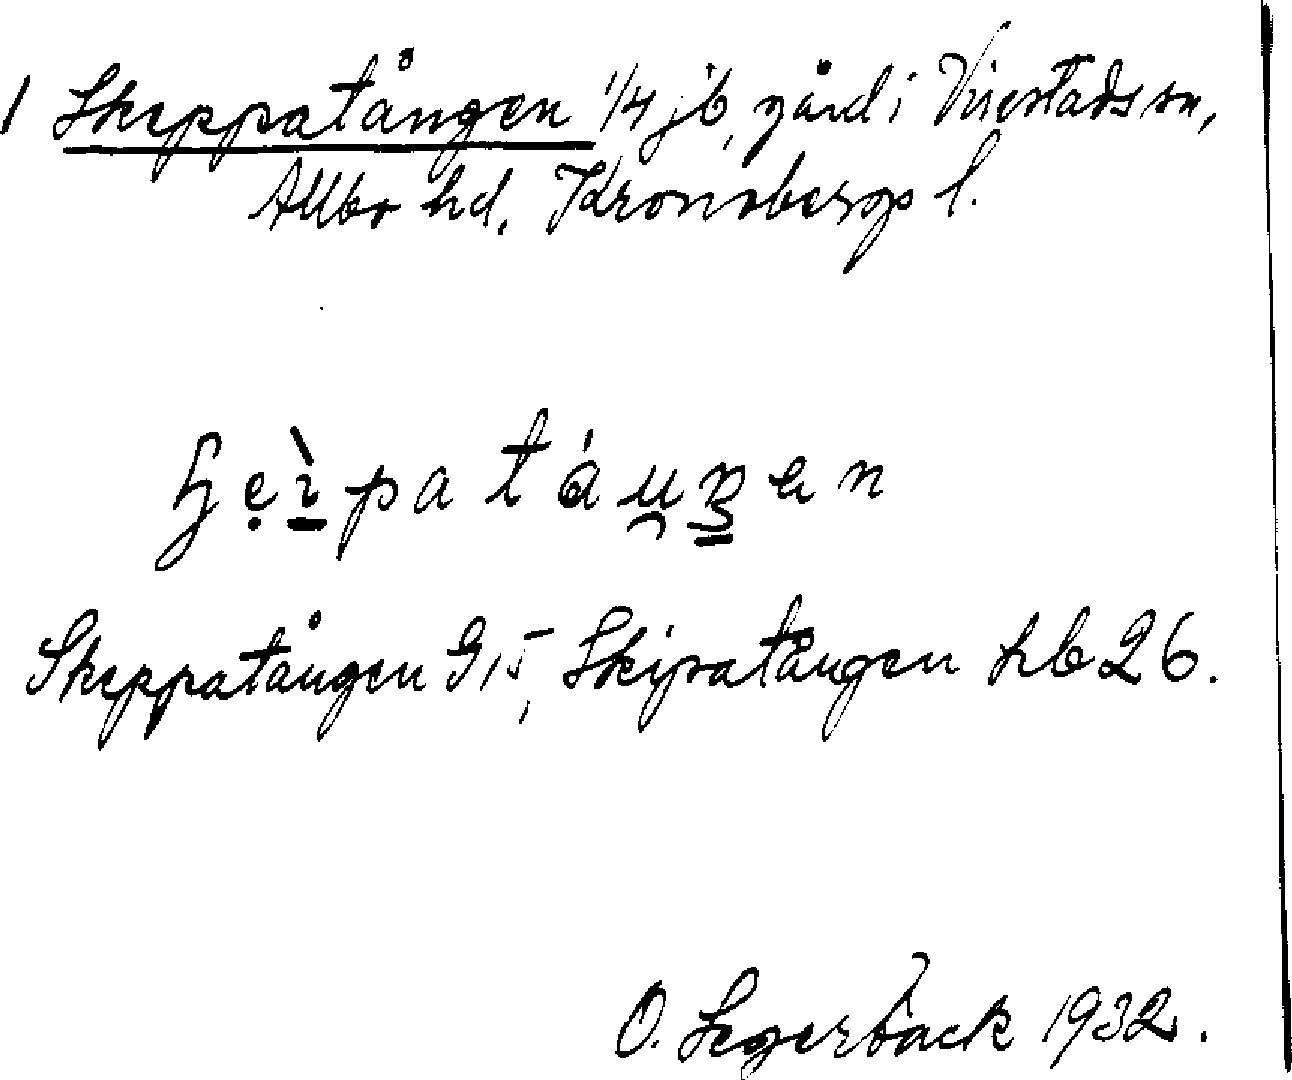 1 Skeppatången 1/4 jb, gård i Virestads sn,
Allbo hd. Kronobergs l.
ɧẹ̀ɪpatáu̯ŋen
Skeppatången G15, Skipatången hb 26.
O. Segerback 1932.